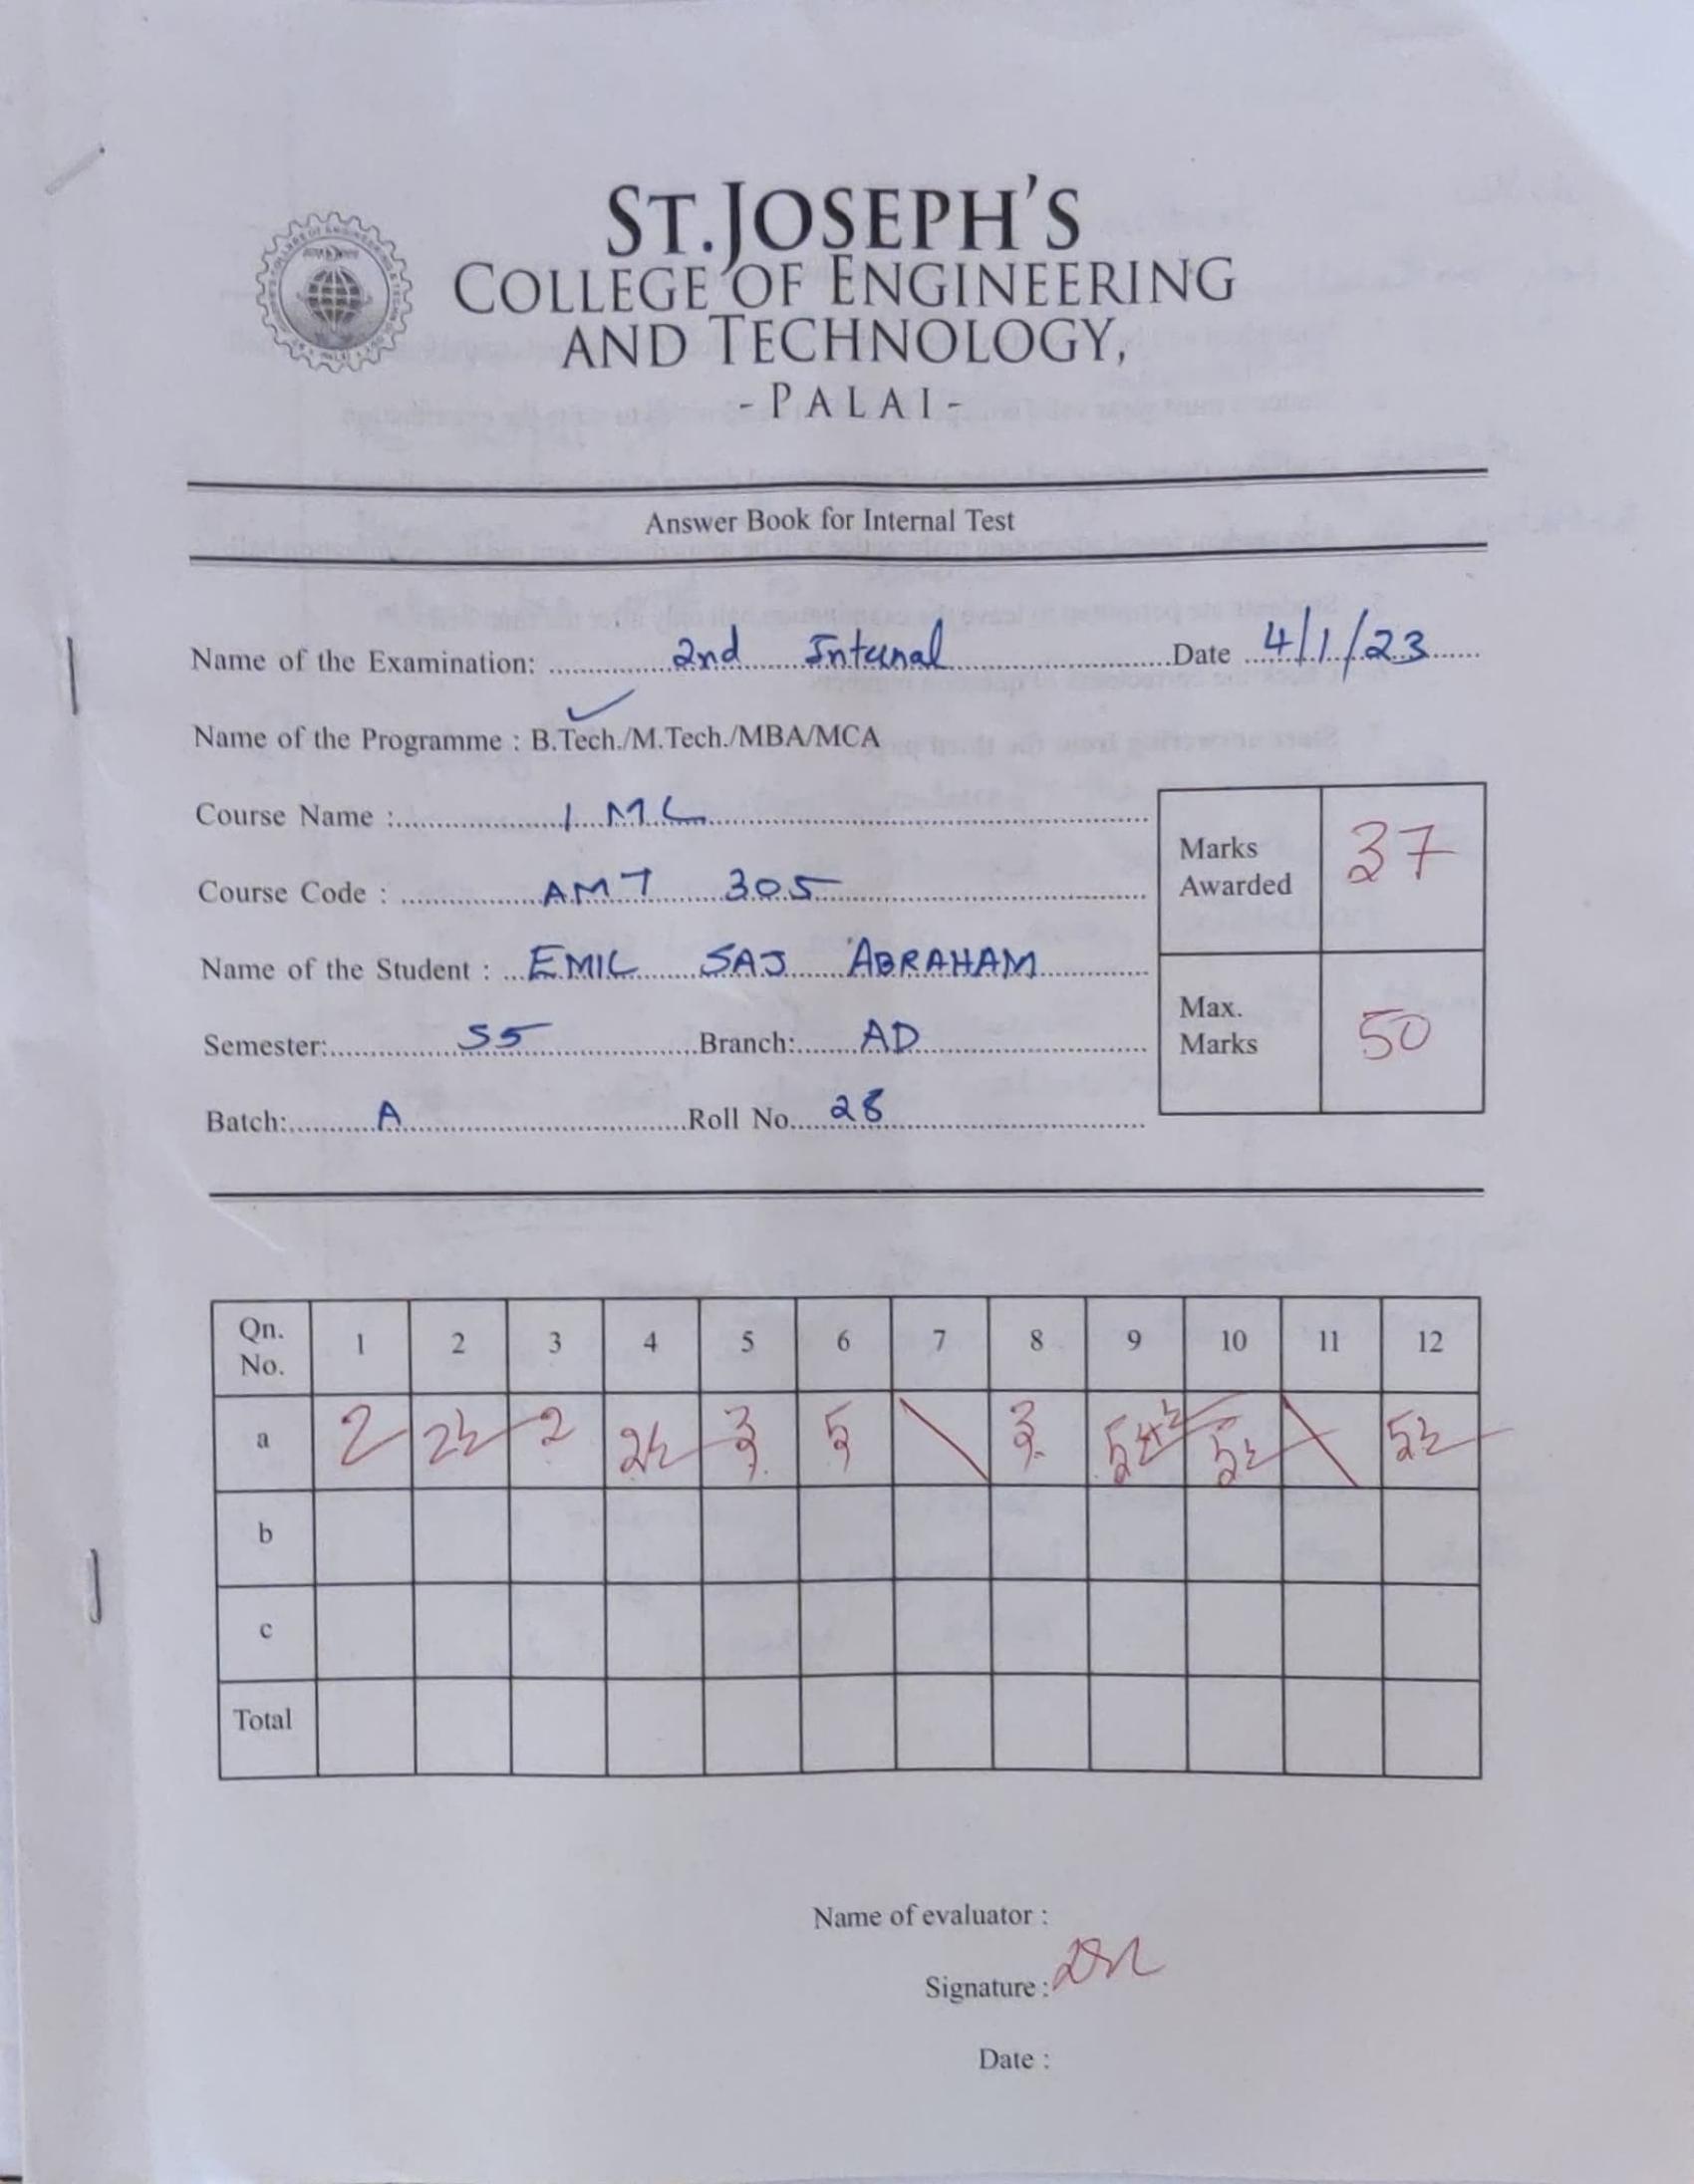 ST.JOSEPH'S
COLLEGE OF ENGINEERING
AND TECHNOLOGY,
- PALAI -
Answer Book for Internal Test
Name of the Examination: 2nd Internal Date 4/1/23
Name of the Programme : B.Tech./M.Tech./MBA/MCA
Course Name : IML
Course Code : AMT 305
Name of the Student : EMIL SAJ ABRAHAM
Semester: S5 Branch: AD
Batch: A Roll No. 28
Marks Awarded 37
Max. Marks 50
Qn. No. 1 2 3 4 5 6 7 8 9 10 11 12
a 2 2½ 2 2½ 3 5 \ 3 5½ \ 5½
b
c
Total
Name of evaluator :
Signature :
Date :